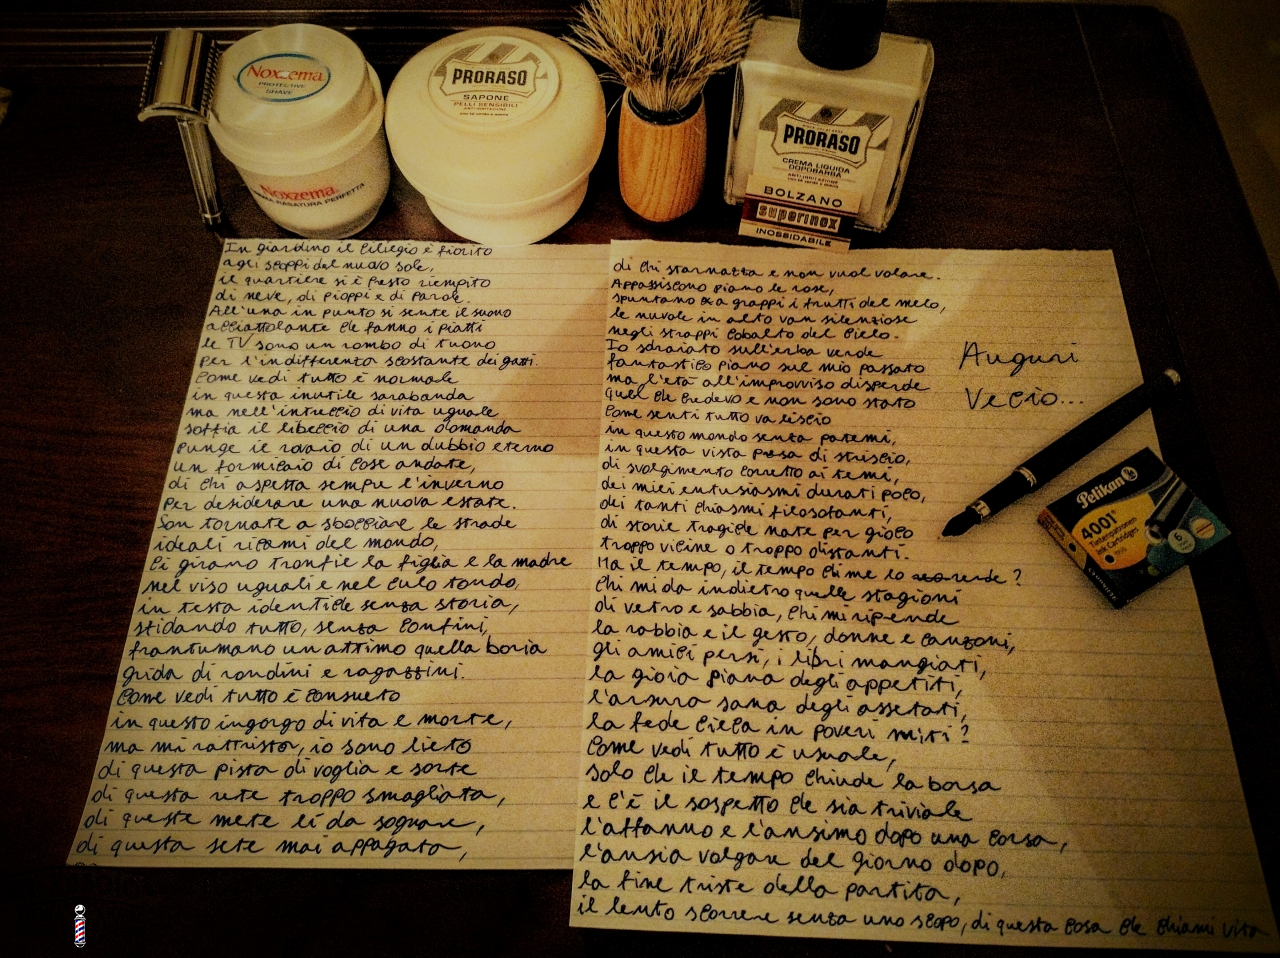 Noxzema
PROTECTIVE
SHAVE
Noxzema
CREMA RASATURA PERFETTA
PRORASO
SAPONE
PELLI SENSIBILI
ANTI-IRRITAZIONE
PRORASO
CREMA LIQUIDA
DOPOBARBA
ANTI-IRRITAZIONE
BOLZANO
superinox
INOSSIDABILE
In giardino il ciliegio è fiorito
agli scoppi del nuovo sole,
il quartiere si è presto riempito
di neve, di pioppi e di parole.
All'una in punto si sente il suono
acciottolante che fanno i piatti
le TV sono un rombo di tuono
per l'indifferenza scostante dei gatti.
Come vedi tutto è normale
in questa inutile sarabanda
ma nell'intreccio di vita uguale
soffia il libeccio di una domanda
punge il rovaio di un dubbio eterno
un formicaio di cose andate,
di chi aspetta sempre l'inverno
per desiderare una nuova estate.
Son tornate a sbocciare le strade
ideali ricami del mondo,
ci girano tronfie la figlia e la madre
nel viso uguali e nel culo tondo,
in testa identiche senza storia,
sfidando tutto, senza confini,
frantumano un attimo quella boria
grida di rondini e ragazzini.
Come vedi tutto è consueto
in questo ingorgo di vita e morte,
ma mi rattristo, io sono lieto
di questa pista di voglia e sorte
di questa rete troppo smagliata,
di queste mete lì da sognare,
di questa sete mai appagata,
di chi starnazza e non vuol volare.
Appassiscono piano le rose,
spuntano a grappi i frutti del melo,
le nuvole in alto van silenziose
negli strappi cobalto del cielo.
Io sdraiato sull'erba verde
fantastico piano sul mio passato
ma l'età all'improvviso disperde
quel che credevo e non sono stato
Come senti tutto va liscio
in questo mondo senza patemi,
in questa vista presa di striscio,
di svolgimento corretto ai temi,
dei miei entusiasmi durati poco,
dei tanti chiasmi filosofanti,
di storie tragiche nate per gioco
troppo vicine o troppo distanti.
Ma il tempo, il tempo chi me lo rende?
chi mi dà indietro quelle stagioni
di vetro e sabbia, chi mi riprende
la rabbia e il gesto, donne e canzoni,
gli amici persi, i libri mangiati,
la gioia piana degli appetiti,
l'arsura sana degli assetati,
la fede cieca in poveri miti?
Come vedi tutto è usuale,
solo che il tempo chiude la borsa
e c'è il sospetto che sia triviale
l'affanno e l'ansimo dopo una corsa,
l'ansia volgare del giorno dopo,
la fine triste della partita,
il lento scorrere senza uno scopo, di questa cosa che chiami vita
Auguri
Vecio...
Pelikan
4001
Tintenpatronen
Ink Cartridges
6